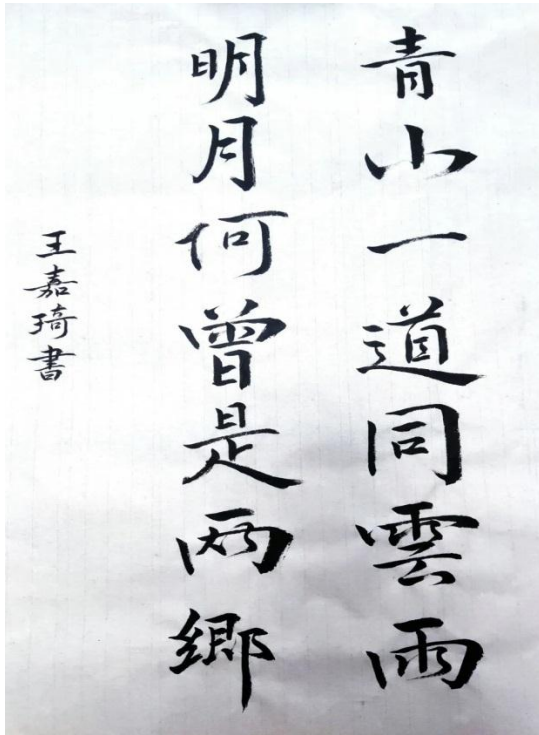 青山一道同雲雨
明月何曾是兩鄉
王嘉琦書